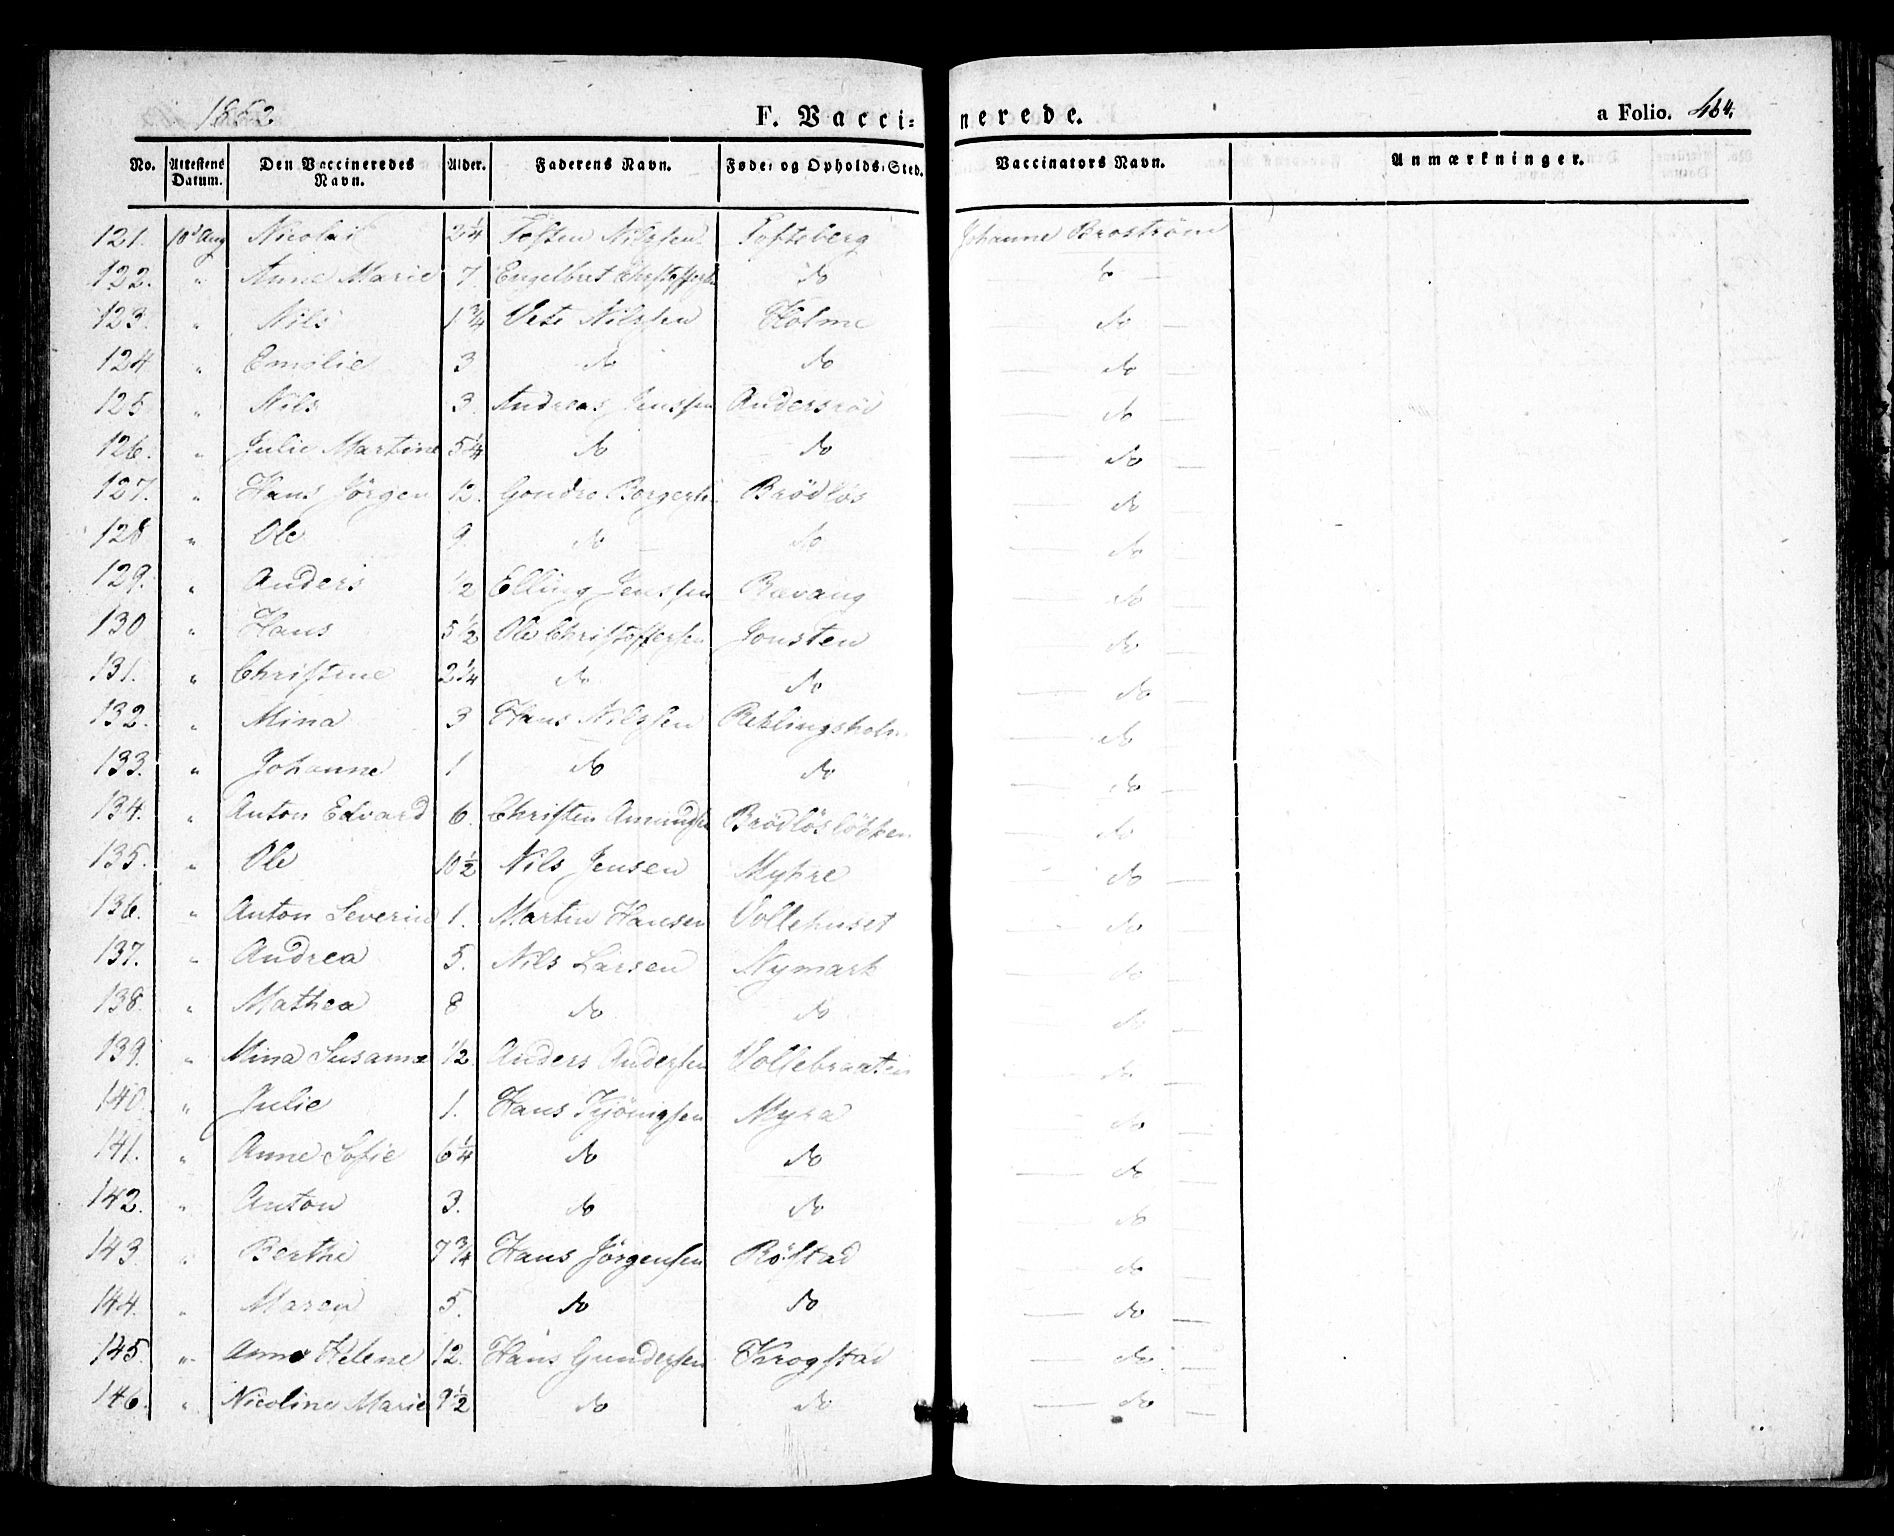 1852 F. Vaccinerede. a Folio. 464.
No. Attestens Datum. Den Vaccineredes Navn. Alder. Faderens Navn. Føde- og Opholds-Sted. Vaccinators Navn. Anmærkninger.
121. 10d Aug Nicolai 2 1/4 Tosten Nilssen Tofteberg Johanne Broström
122. " Anne Marie 7. Engelbret Christoffersen do do
123. " Nils 1 3/4 Nilssen Holme do
124 " Emilie 3 do do do
125 " Nils 3. Andreas Jenssen Andersröd do
126. " Julie Martine 5 1/4 do do do
127. " Hans Jörgen 12. Borgersen Brödlös do
128 " Ole 9. do do do
129. " Anders 1/2 Elling Jenssen Bævang do
130 " Hans 5 1/2 Ole Christoffersen Jonsten do
131. " Christine 2 1/4 do do do
132. " Mina 3 Hans Nilssen Reklingsholm do
133. " Johanne 1 do do do
134. " Anton Edvard 6. Christen Amundsen Brödlöslökken do
135. " Ole 10 1/2 Nils Jensen Myhre do
136. " Anton Severin 1. Martin Hansen Vollehuset do
137. " Andrea 5. Nils Larsen Nymark do
138. " Mathea 8 do do do
139. " Mina Susanne 1/2 Anders Anderssen Vollebraaten do
140. " Julie 1. Hans Kjönigsen Myra do
141. " Anne Sofie 6 1/4 do do do
142. " Anton 3. do do do
143. " Berthe 7 3/4 Hans Jörgensen Röstad do
144. " Maren 5. do do do
145. " Anne Helene 12. Hans Gundersen Krogstad do
146. " Nicoline Marie 9 1/2 do do do